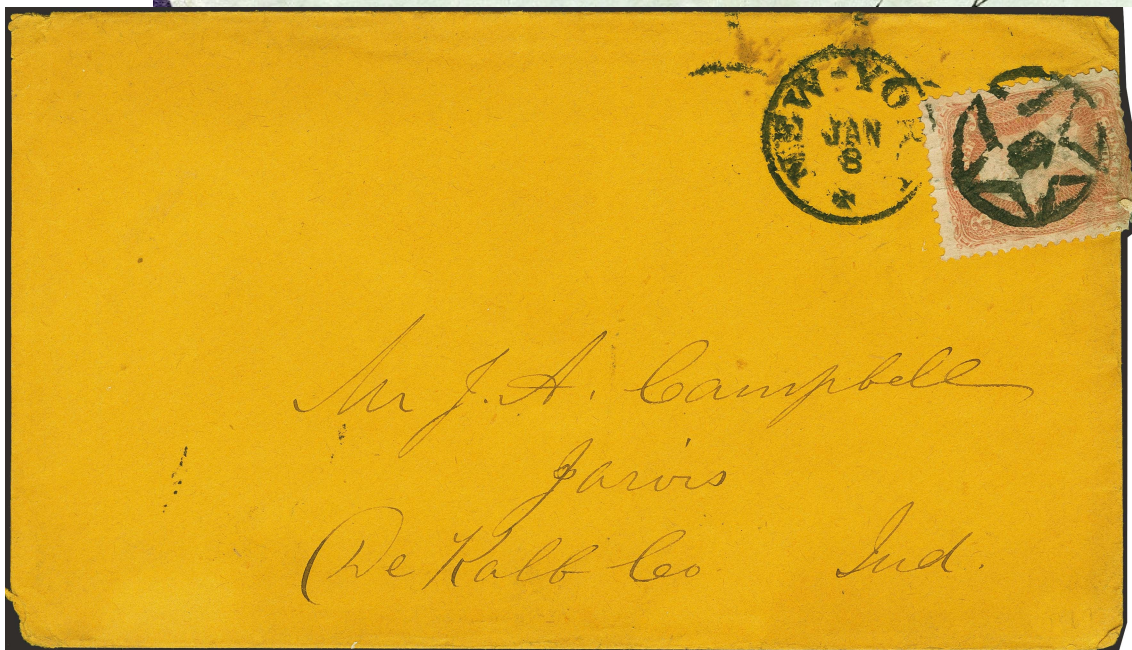 NEW-YORK
JAN
8
Mr J. A. Campbell
Jarvis
De Kalb Co Ind.